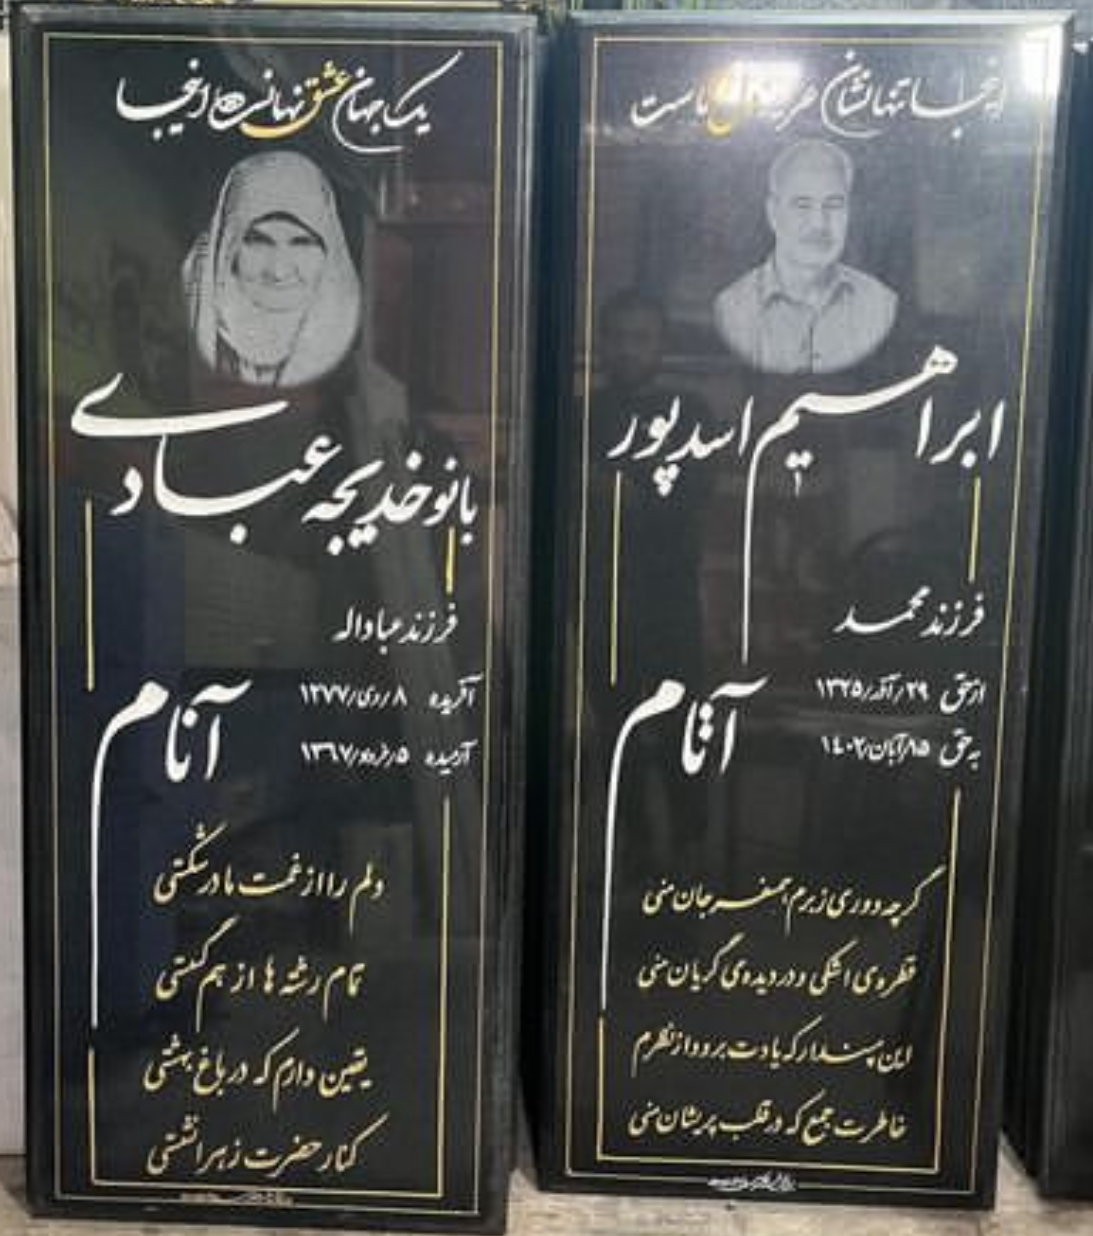 اینجا تنها نشان هر
ماست
ابراهیم اسدپور
فرزند محمد
از حق ۲۹/آذر/۱۳۲۵
به حق ۱۵/آبان/۱۴۰۲
آنام
گرچه دوری ز برم همسفر جان منی
قطره‌ی اشکی و در دیده‌ی گریان منی
این مپندار که یادت برود از نظرم
خاطرت جمع که در قلب پریشان منی
یک جهان عشق نهان است اینجا
بانو خدیجه عبادی
فرزند عباداله
آفریده ۸/دی/۱۲۷۷
آرمیده ۵/خرداد/۱۳۶۷
آنام
دلم را از غمت مادر شکستی
تمام رشته ها از هم گسستی
یقین دارم که در باغ بهشتی
کنار حضرت زهرا نشستی